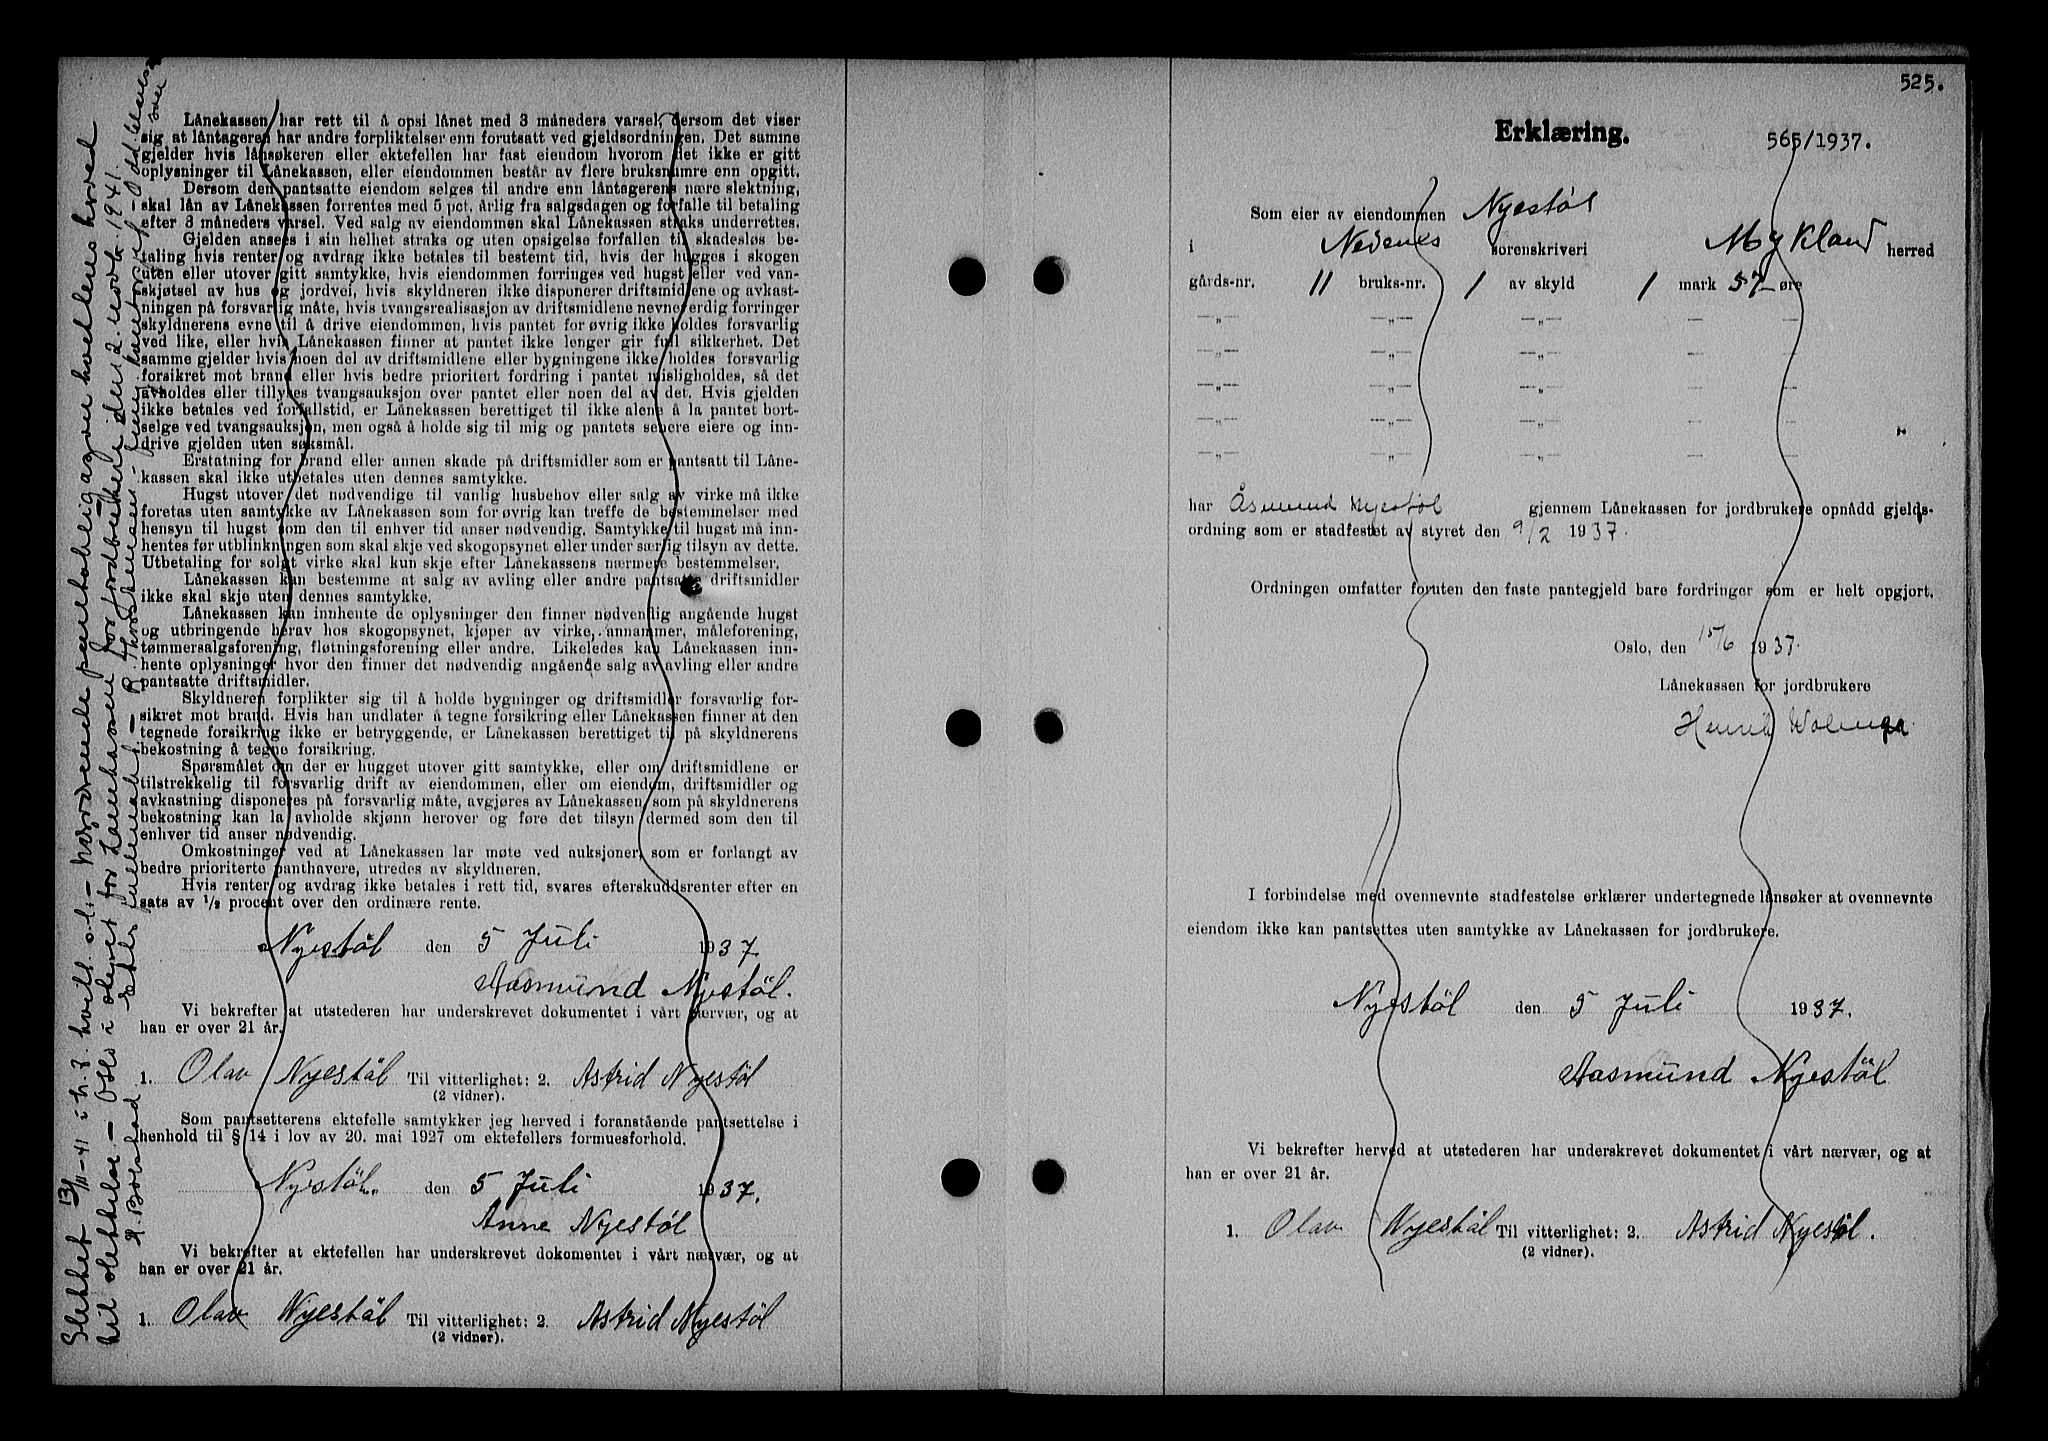 Lånekassen har rett til å opsi lånet med 3 måneders varsel, dersom det viser
sig at låntageren har andre forpliktelser enn forutsatt ved gjeldsordningen. Det samme
gjelder hvis lånsøkeren eller ektefellen har fast eiendom hvorom det ikke er gitt
oplysninger til Lånekassen, eller eiendommen består av flere bruksnumre enn opgitt.
Dersom den pantsatte eiendom selges til andre enn låntagerens nære slektning,
skal lån av Lånekassen forrentes med 5 pct. årlig fra salgsdagen og forfalle til betaling
efter 3 måneders varsel. Ved salg av eiendommen skal Lånekassen straks underrettes.
Gjelden ansees i sin helhet straks og uten opsigelse forfallen til skadesløs be-
taling hvis renter og avdrag ikke betales til bestemt tid, hvis der hugges i skogen
uten eller utover gitt samtykke, hvis eiendommen forringes ved hugst eller ved van-
skjøtsel av hus og jordvei, hvis skyldneren ikke disponerer driftsmidlene og avkast-
ningen på forsvarlig måte, hvis tvangsrealisasjon av driftsmidlene nevneverdig forringer
skyldnerens evne til å drive eiendommen, hvis pantet for øvrig ikke holdes forsvarlig
ved like, eller hvis Lånekassen finner at pantet ikke lenger gir full sikkerhet. Det
samme gjelder hvis noen del av driftsmidlene eller bygningene ikke holdes forsvarlig
forsikret mot brand eller hvis bedre prioritert fordring i pantet misligholdes, så det
avholdes eller tillyses tvangsauksjon over pantet eller noen del av det. Hvis gjelden
ikke betales ved forfallstid, er Lånekassen berettiget til ikke alene å la pantet bort-
selge ved tvangsauksjon, men også å holde sig til mig og pantets senere eiere og inn-
drive gjelden uten søksmål.
Erstatning for brand eller annen skade på driftsmidler som er pantsatt til Låne-
kassen skal ikke utbetales uten dennes samtykke.
Hugst utover det nødvendige til vanlig husbehov eller salg av virke må ikke
foretas uten samtykke av Lånekassen som for øvrig kan treffe de bestemmelser med
hensyn til hugst som den til enhver tid anser nødvendig. Samtykke til hugst må inn-
hentes før utblinkningen som skal skje ved skogopsynet eller under særlig tilsyn av dette.
Utbetaling for solgt virke skal kun skje efter Lånekassens nærmere bestemmelser.
Lånekassen kan bestemme at salg av avling eller andre pantsatte driftsmidler
ikke skal skje uten dennes samtykke.
Lånekassen kan innhente de oplysninger den finner nødvendig angående hugst
og utbringende herav hos skogopsynet, kjøper av virke, annammer, måleforening,
tømmersalgsforening, fløtningsforening eller andre. Likeledes kan Lånekassen inn-
hente oplysninger hvor den finner det nødvendig angående salg av avling eller andre
pantsatte driftsmidler.
Skyldneren forplikter sig til å holde bygninger og driftsmidler forsvarlig for-
sikret mot brand. Hvis han undlater å tegne forsikring eller Lånekassen finner at den
tegnede forsikring ikke er betryggende, er Lånekassen berettiget til på skyldnerens
bekostning å tegne forsikring.
Spørsmålet om der er hugget utover gitt samtykke, eller om driftsmidlene er
tilstrekkelig til forsvarlig drift av eiendommen, eller om eiendom, driftsmidler og
avkastning disponeres på forsvarlig måte, avgjøres av Lånekassen, som på skyldnerens
bekostning kan la avholde skjønn herover og føre det tilsyn dermed som den til
enhver tid anser nødvendig.
Omkostninger ved at Lånekassen lar møte ved auksjoner, som er forlangt av
bedre prioriterte panthavere, utredes av skyldneren.
Hvis renter og avdrag ikke betales i rett tid, svares efterskuddsrenter efter en
sats av 1/2 procent over den ordinære rente.
Nyestöl den 5 Juli 1937
Aasmünd Nyestöl.
Vi bekrefter at utstederen har underskrevet dokumentet i vårt nærvær, og at
han er over 21 år.
1. Olav Nyestöl Til vitterlighet: 2. Astrid Nyestöl
(2 vidner).
Som pantsetterens ektefelle samtykker jeg herved i foranstående pantsettelse i
henhold til § 14 i lov av 20. mai 1927 om ektefellers formuesforhold.
Nyestöl den 5 Juli 1937.
Anne Nyestöl
Vi bekrefter at ektefellen har underskrevet dokumentet i vårt nærvær, og at
han er over 21 år.
1. Olav Nyestöl Til vitterlighet: 2. Astrid Nyestöl
(2 vidner).
Slettet 13/11-41 i h. t. kvitt. o.l.: Nærværende panteheftelse herved
til slettelse. - Oslo i styret for Lånekassen for jordbrukere den 2. 1941.
525.
Erklæring.
565/1937.
Som eier av eiendommen Nyestöl
i Nedenes sorenskriveri Mykland herred
gårds-nr. 11 bruks-nr. 1 av skyld 1 mark 57 øre
har Åsmund Nyestøl gjennem Lånekassen for jordbrukere opnådd gjelds-
ordning som er stadfestet av styret den 9/2 1937.
Ordningen omfatter foruten den faste pantegjeld bare fordringer som er helt opgjort.
Oslo, den 15/6 1937.
Lånekassen for jordbrukere
I forbindelse med ovennevnte stadfestelse erklærer undertegnede lånsøker at ovennevnte
eiendom ikke kan pantsettes uten samtykke av Lånekassen for jordbrukere.
Nyestöl den 5 Juli 1937.
Aasmünd Nyestöl
Vi bekrefter herved at utstederen har underskrevet dokumentet i vårt nærvær, og at
han er over 21 år.
1. Olav Nyestöl Til vitterlighet: 2. Astrid Nyestöl.
(2 vidner).